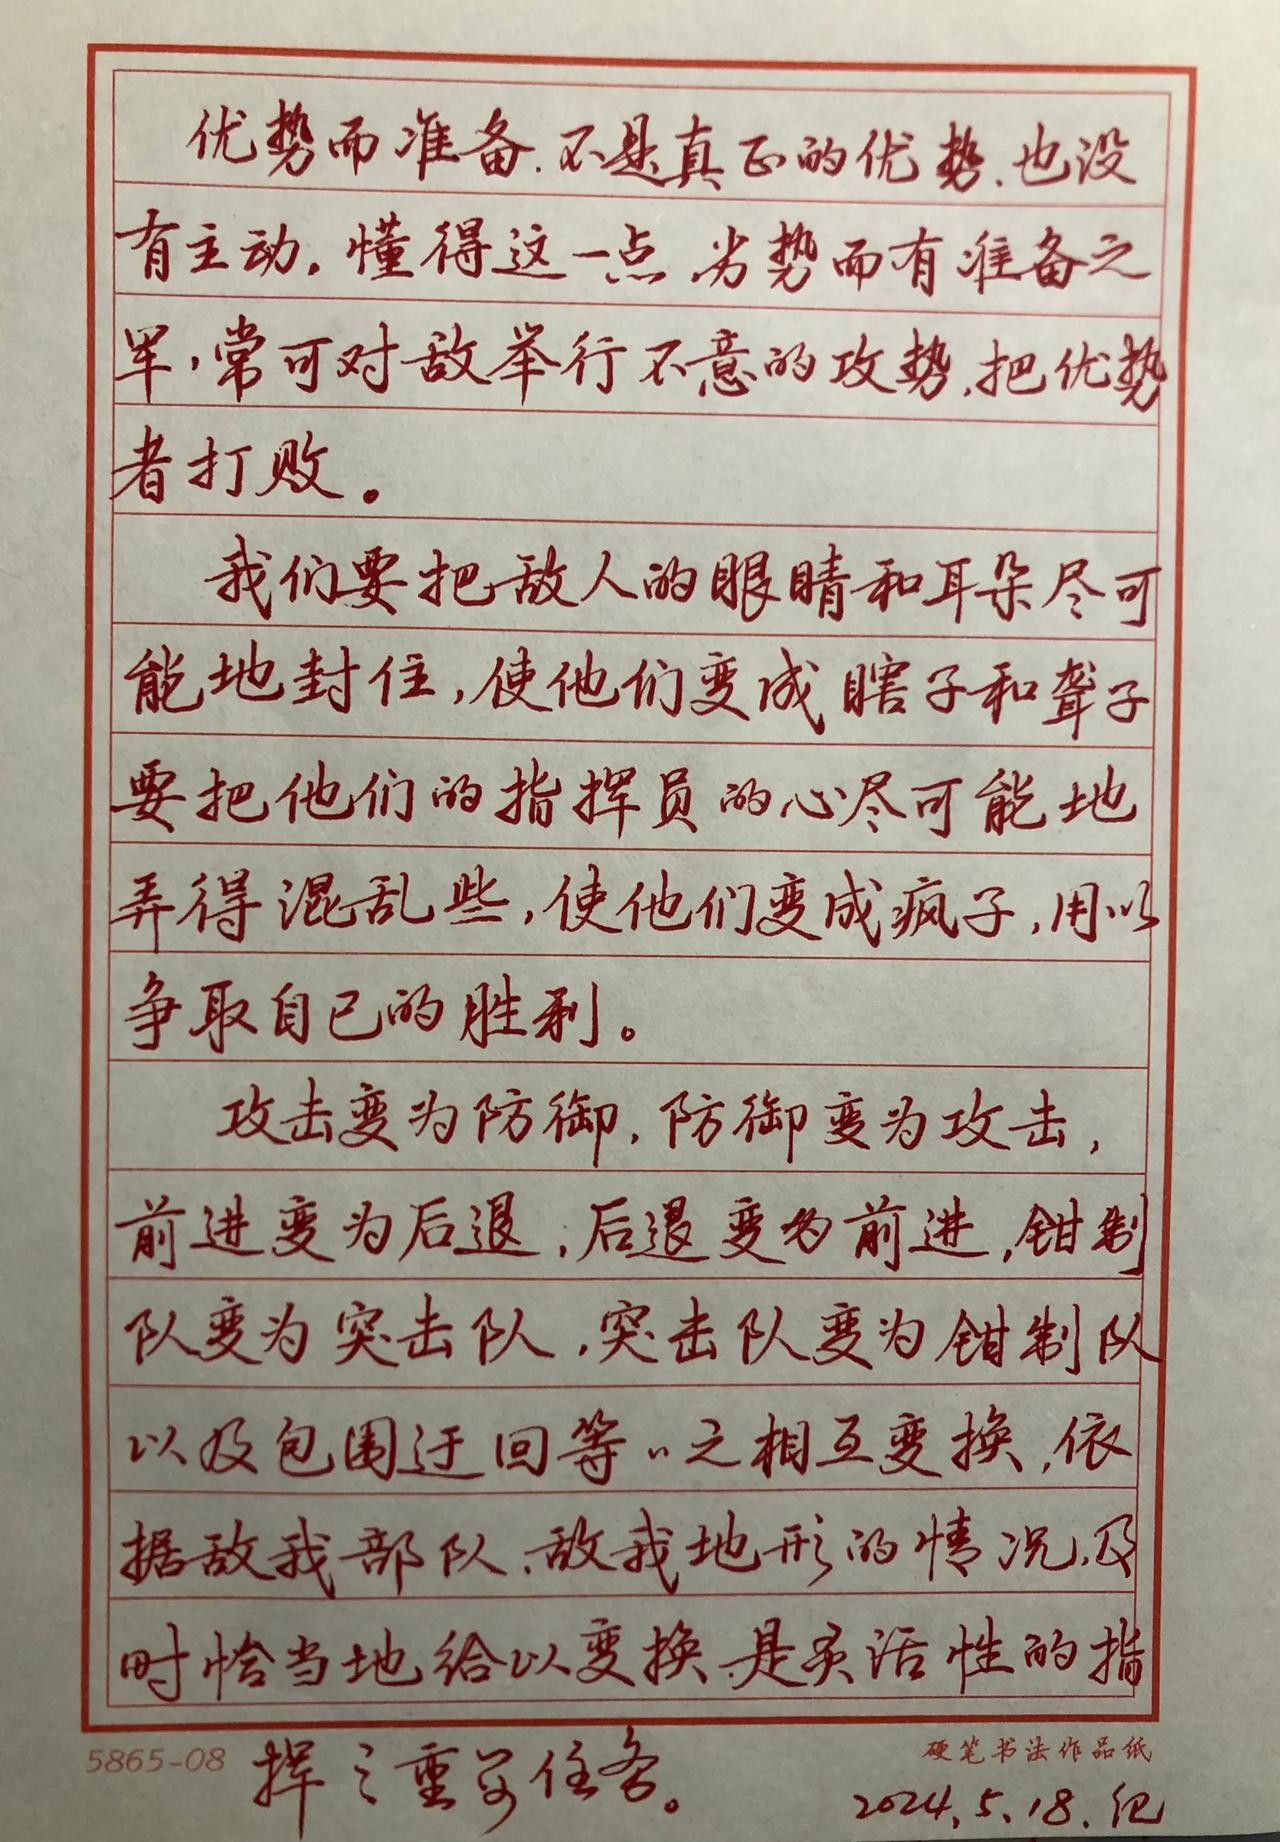 优势而准备、不是真正的优势、也没
有主动。懂得这一点 劣势而有准备之
军,常可对敌举行不意的攻势,把优势
者打败。
我们要把敌人的眼睛和耳朵尽可
能地封住,使他们变成瞎子和聋子
要把他们的指挥员的心尽可能地
弄得混乱些,使他们变成疯子,用以
争取自己的胜利。
攻击变为防御,防御变为攻击,
前进变为后退,后退变为前进,钳制
队变为突击队,突击队变为钳制队
以及包围迂回等〃之相互变换,依
据敌我部队、敌我地形的情况,及
时恰当地给以变换、是灵活性的指
挥之重要任务。
5865-08
硬笔书法作品纸
2024.5.18.